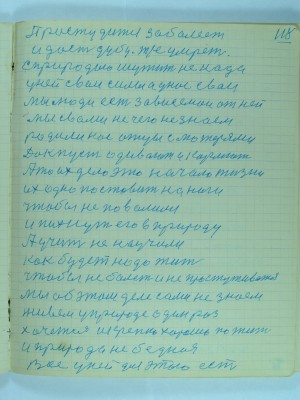 118
Простудится заболеет
и даст дубу. Уже умрет.
с природою шутит не надо
у ней свои силы а у нас свои
мы люди ест зависемои от ней
мы с вами нечего не знаем
родили нас отцы с матерями
Вот пуст одивают и кормют
А то их дело это начало жизни
их одно поставит на ноги
чтобы не повалили
и пихнут его в природу
А учит не научили
как будет надо жит
чтобы не болет и не простуживатся
мы об этом дел сами не знаем
живем в природе один раз
хочется и крепко хорошо пожит
и природа не бедная
Все у ней для этого ест